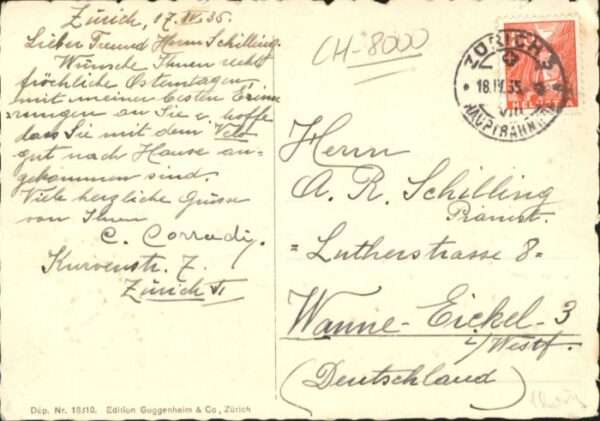 Zürich, 17. IV. 35.
Lieber Freund Herrn Schilling.
Wünsche Ihnen recht
fröchliche Ostertagen,
mit meiner besten Erinne
rungen an Sie u. hoffe
dass Sie mit dem Velo
gut nach Hause an-
gekommen sind.
Viele herzliche Grüsse
von Ihnen
C. Corradi
Kurvenstr. 7.
Zürich 6
Dép. Nr. 1810. Edition Guggenheim & Co, Zürich
CH-8000
ZÜRICH 3
18.IV.35
VIII
HAUPTBAHNHOF
HELVETIA
Herrn
A. R. Schilling
Pianist.
= Lutherstrasse 8 =
Wanne-Eickel-3
i/Westf.
(Deutschland)